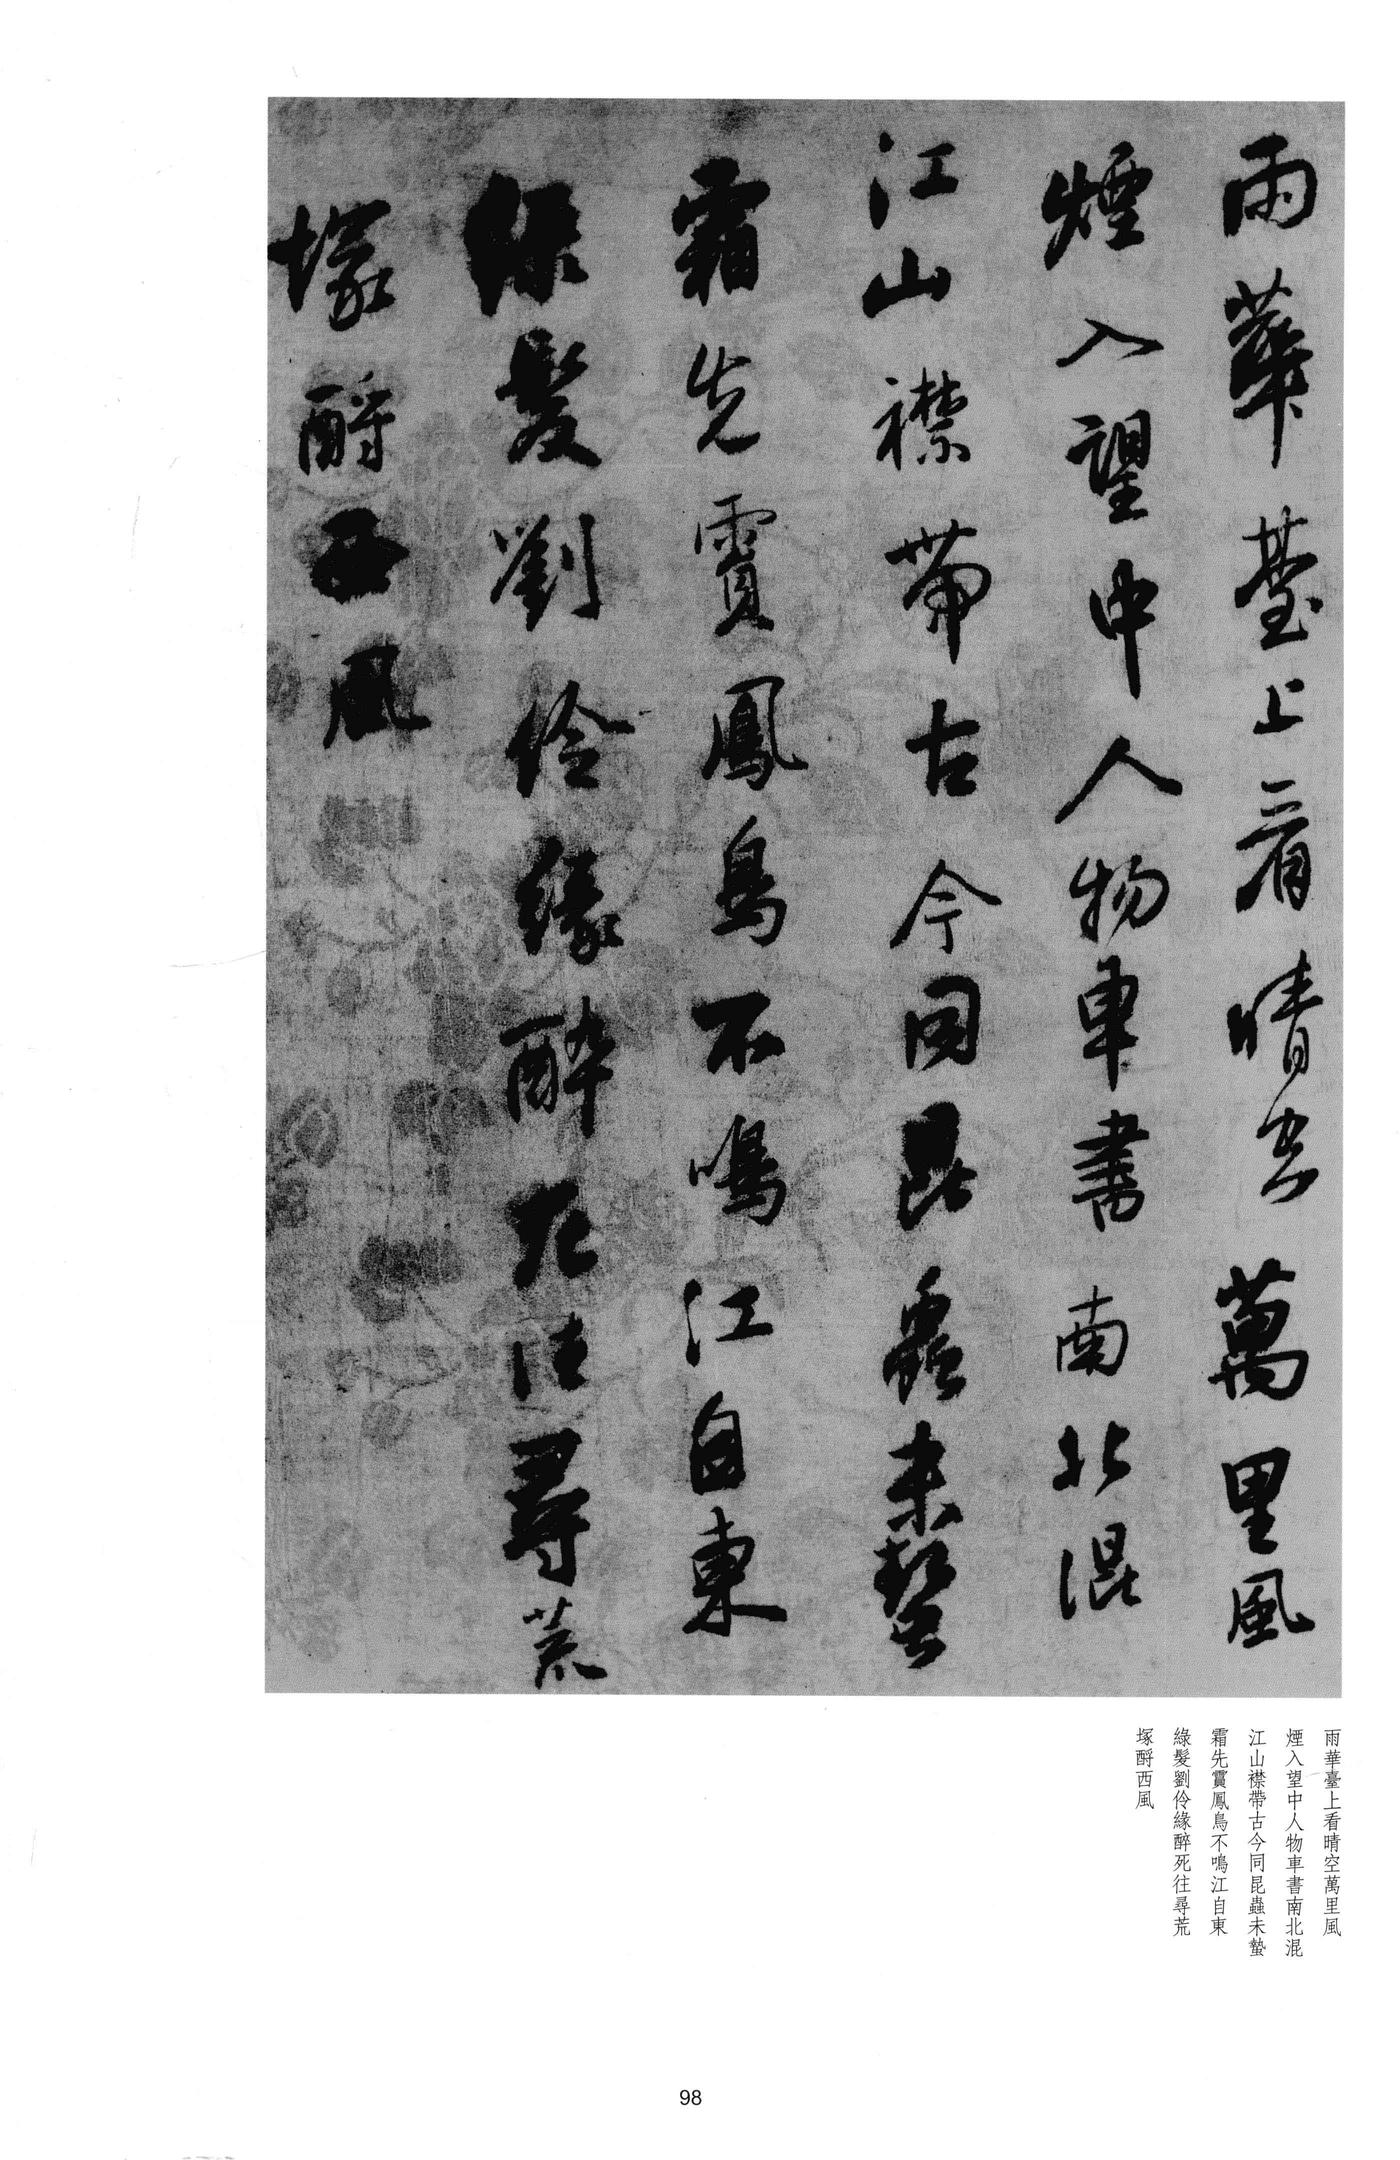 雨華臺上看晴空萬里風
煙入望中人物車書南北混
江山襟帶古今同昆蟲未蟄
霜先賈鳳鳥不鳴江自東
綠髮劉伶緣醉死往尋荒
塚酹西風
雨華臺上看晴空萬里風
煙入望中人物車書南北混
江山襟帶古今同昆蟲未蟄
霜先霣鳳鳥不鳴江自東
綠髮劉伶緣醉死往尋荒
塚酹西風
98